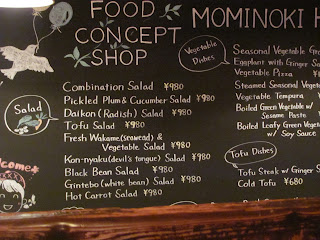 FOOD
CONCEPT
SHOP
MOMINOKI H
Salad
Combination Salad ¥980
Pickled Plum & Cucumber Salad ¥980
Daikon (Radish) Salad ¥980
Tofu Salad ¥980
Fresh Wakame (seaweed) &
Vegetable Salad ¥980
Kon-nyaku (devil's tongue) Salad ¥980
Black Bean Salad ¥980
Gintebo (white bean) Salad ¥980
Hot Carrot Salad ¥980
Vegetable
Dishes
Seasonal Vegetable Gr
Eggplant with Ginger Sa
Vegetable Pizza
Steamed Seasonal Vegeta
Vegetable Tempura
Boiled Green Vegetable w/
Sesame Paste
Boiled Leafy Green Vegeta
w/ Soy Sauce
Tofu Dishes
Tofu Steak w/ Ginger S
Cold Tofu ¥680
elcome